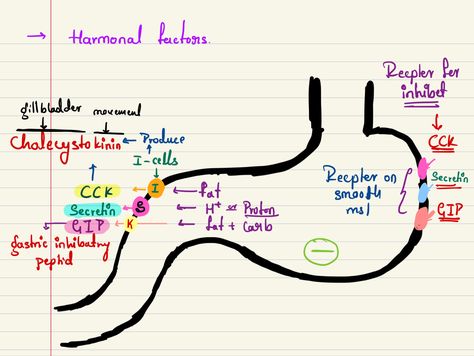 → Harmonal factors.
Recpter for
inhibet
gillbladder movement
Cholecystokinin ← Produce
I-cells
CCK
CCK ← I ← fat
Secretin ← S ← H+ or Proton
GIP ← K ← fat + Carb
gastric inhibatry
peptid
Recpter on
smooth
msl
Secretin
GIP